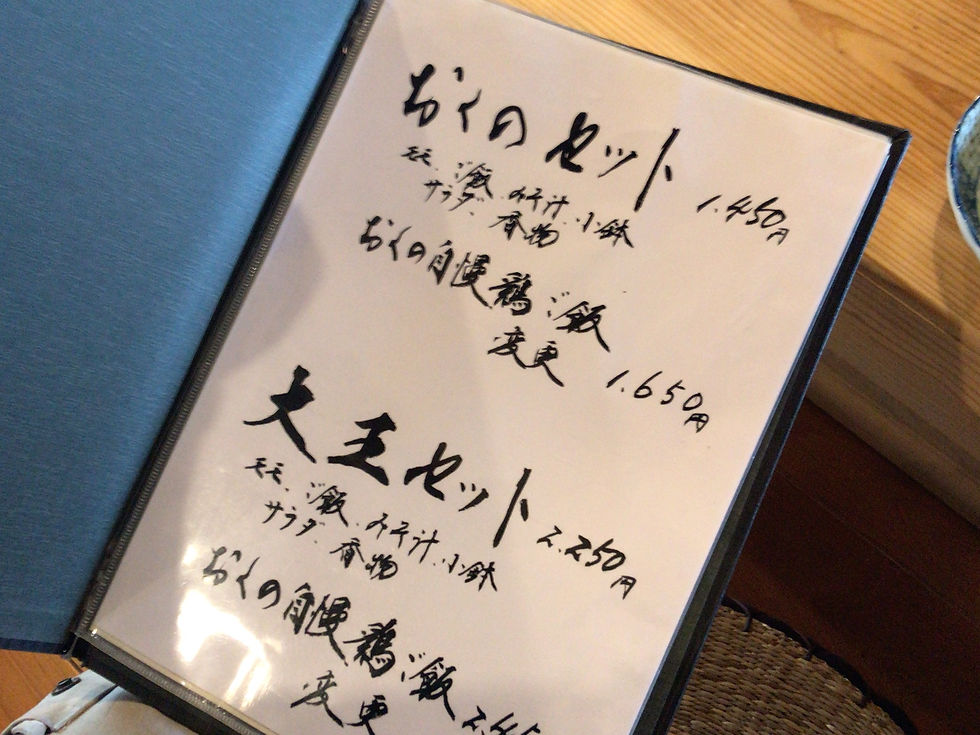 おくのセット 1.450円
モモ、ご飯、みそ汁、小鉢
サラダ、香物
おくの自慢鶏ご飯
変更 1.650円
大王セット 2.250円
モモ、ご飯、みそ汁、小鉢
サラダ、香物
おくの自慢鶏ご飯
変更 2.45